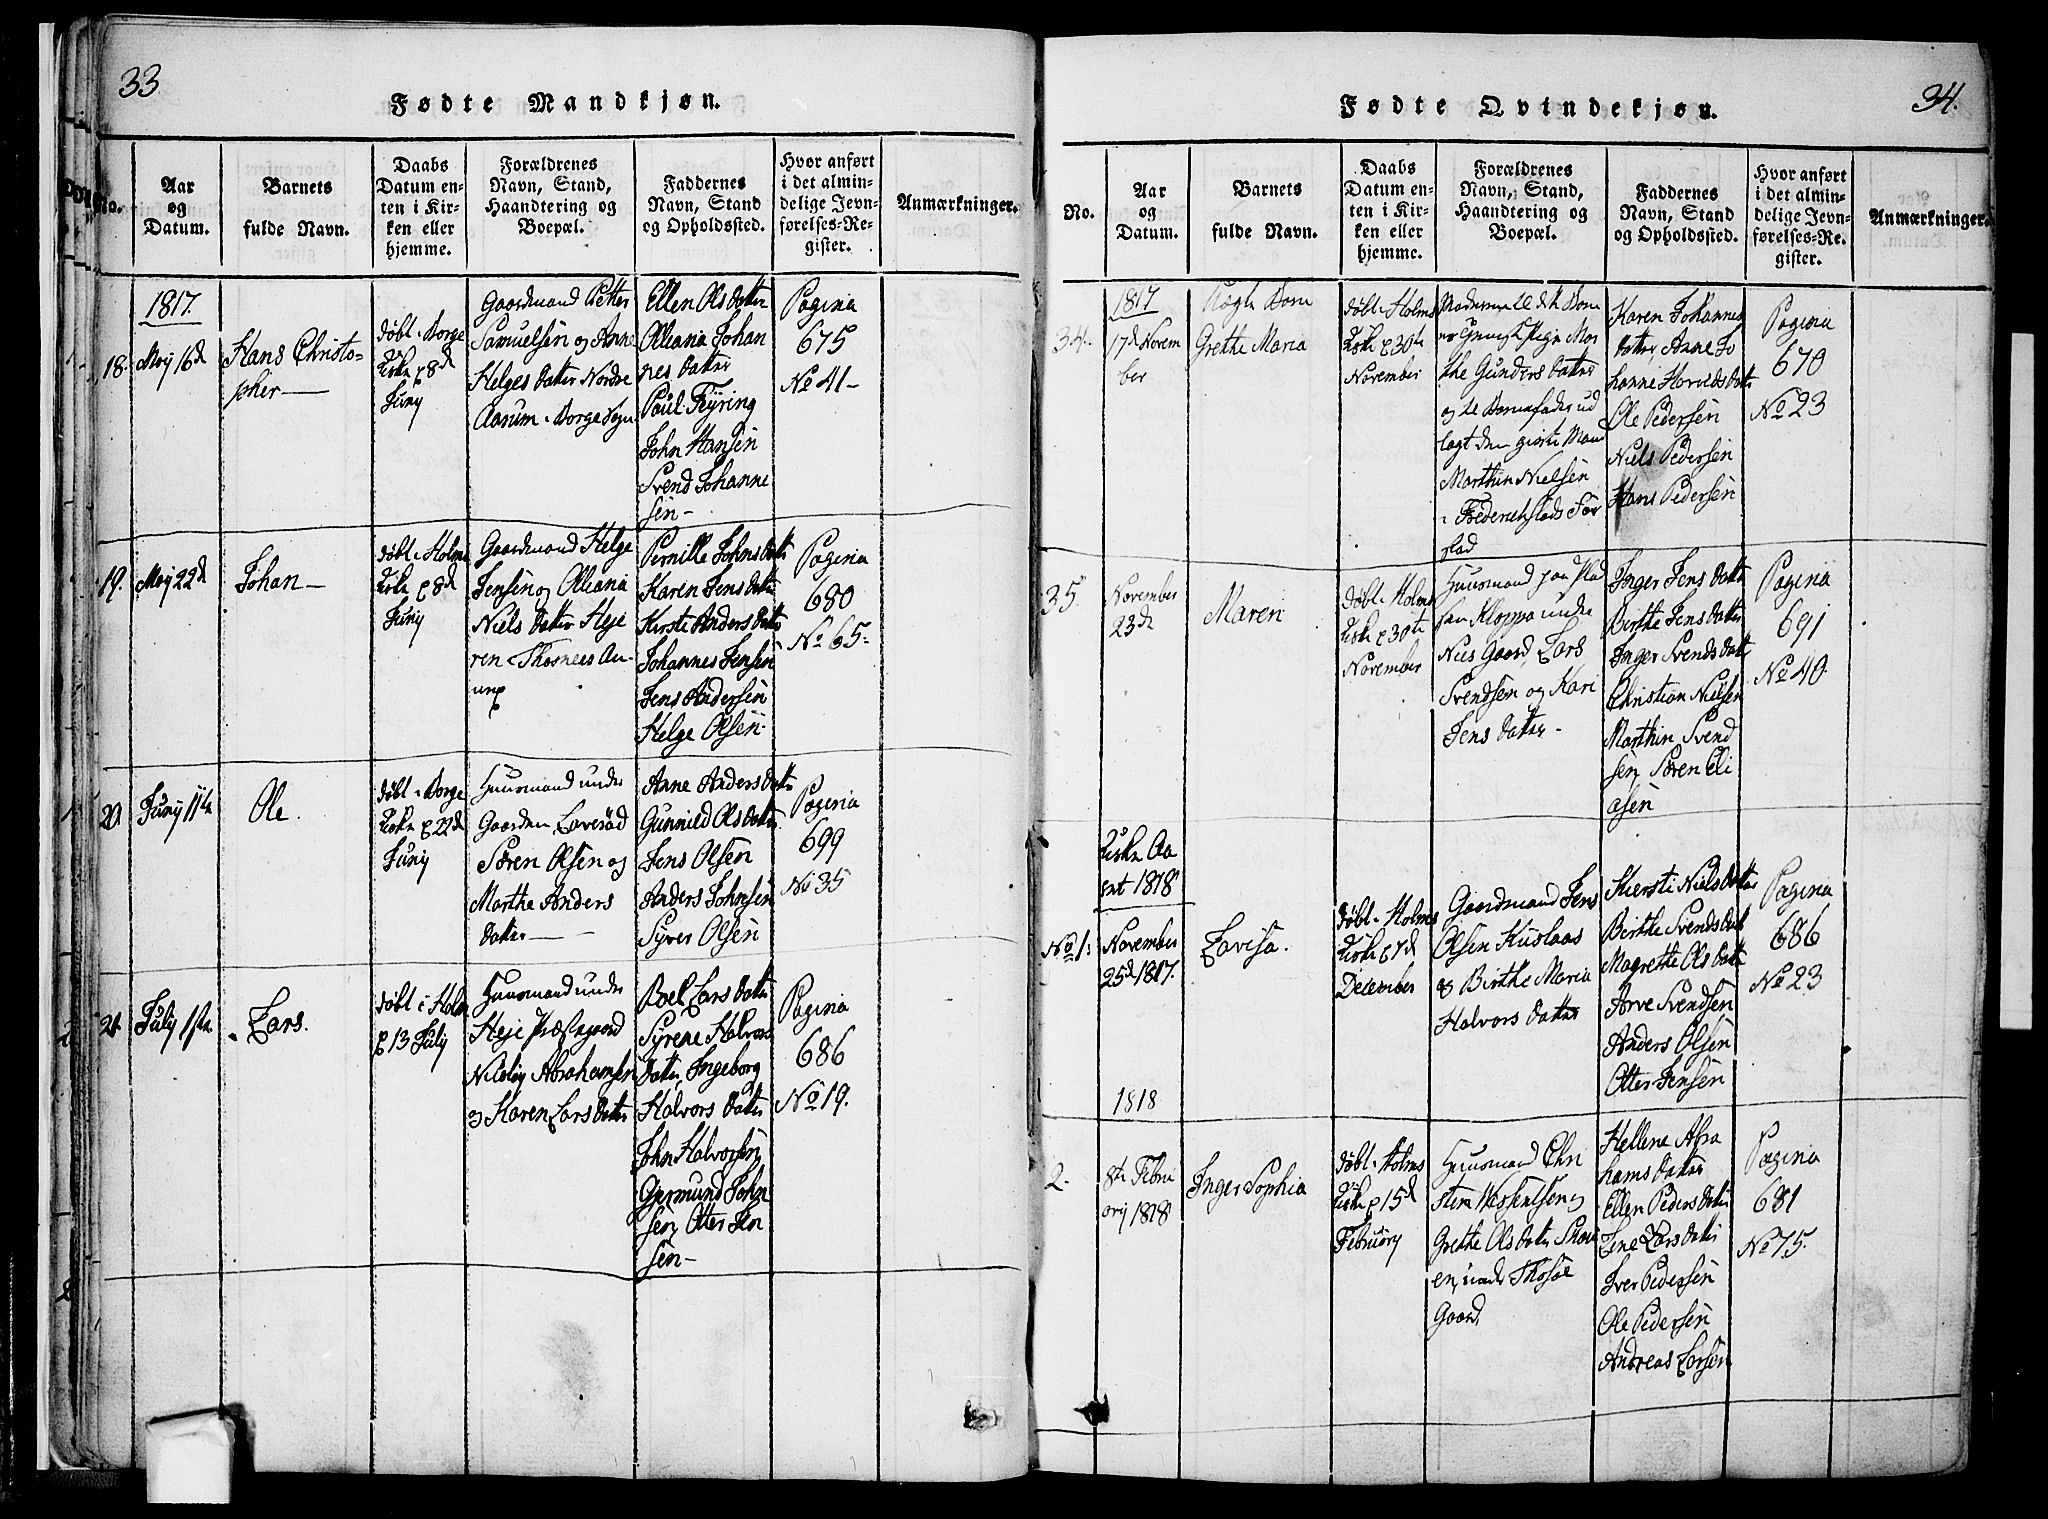 33
Fødte Mandkjøn.
No.
Aar
og
Datum.
Barnets
fulde Navn.
Daabs
Datum en-
ten i Kir-
ken eller
hjemme.
Forældrenes
Navn, Stand,
Haandtering og
Boepæl.
Faddernes
Navn, Stand
og Opholdssted.
Hvor anført
i det almin-
delige Jevn-
førelses-Re-
gister.
Anmærkninger.
1817.
18.
Maj 16d
Hans Christo-
pher
døbt i Borge
Kirke
8d
Juny
Gaardmand Petter
Samuelsen og Anne
Helges datter Nordre
Aarum i Borge Sogn
Ellen Ols datter
Olliana Johan
nes datter
Paul Feyring
John Hansen
Svend Johanne
sen
Pagina
675
No 41
19.
Maj 22d
Johan
døbt i Holms
Kirke
8d
Juny
Gaardmand Helge
Jensen og Olliana
Niels datter Heje
ren
Pernille Johns datter
Karen Jens datter
Kirsti Anders datter
Johannes Jensen
Jens Andersen
Helge Olsen
Pagina
680
No 65
20.
Juny 11te
Ole.
døbt i Borge
Kirke
22d
Juny
Huusmand under
Gaarden Lavesød
Søren Olsen og
Marthe Anders
datter
Anne Anders datter
Gunnild Ols datter
Jens Olsen
Anders Johnsen
Syver Olsen
Pagina
699
No 35
21.
July 1ste
Lars.
døbt i Holm
13 July
Huusmand under
Heje Præstegaard
Nicolay Abrahamsen
og Karen Lars datter
Boel Lars datter
Syrene Halvors
datter, Ingeborg
Halvors datter
John Halvorsen
Germund John
sen, Otter Jen
sen
Pagina
686
No 19.
34.
Fødte Qvindekjøn.
No.
Aar
og
Datum.
Barnets
fulde Navn.
Daabs
Datum en-
ten i Kir-
ken eller
hjemme.
Forældrenes
Navn, Stand,
Haandtering og
Boepæl.
Faddernes
Navn, Stand
og Opholdssted.
Hvor anført
i det almin-
delige Jevn-
førelses-Re-
gister.
Anmærkninger.
34.
1817
17d Novem
ber
Uægte Barn
Grethe Maria
døbt i Holms
Kirke 30te
November
Moderen
Pige Mar
the Gunders datter
og
Barnefader ud
lagt den gifte Mand
Marthin Nielsen
i Frederichstads For
stad
Karen Johannes
datter Anne Jo
hanne Harvelds datter
Ole Pedersen
Niels Pedersen
Hans Pedersen
Pagina
670
No 23
35.
November
23d
Maren
døbt i Holms
Kirke 30te
November
Huusmand paa Plad
sen Kloppa under
Nies Gaard, Lars
Svendsen og Kari
Jens datter
Inger Jens datter
Birthe Jens datter
Inger Svends datter
Christian Nielsen
Marthin Svend
sen Søren Eli
asen
Pagina
691
No 40.
Kirke Aa
ret 1818
No 1.
November
25d 1817.
Lovisa.
døbt i Holms
Kirke 7d
December
Gaardmand Jens
Olsen Huslaas
& Birthe Maria
Halvors datter
Kiersti Niels datter
Birthe Svends datter
Magrethe Ols datter
Arve Svendsen
Anders Olsen
Otter Jensen
Pagina
686
No 23
1818
2.
8de Febru
ary 1818
Inger Sophia
døbt i Holms
Kirke 15d
February
Huusmand Chri
sten
og
Grethe Ols datter
en, under Thosøe
Gaard.
Hellene Abra
hams datter
Ellen Peders datter
Jene Lars datter
Iver Pedersen
Ole Pedersen
Andreas Larsen
Pagina
681
No 75.